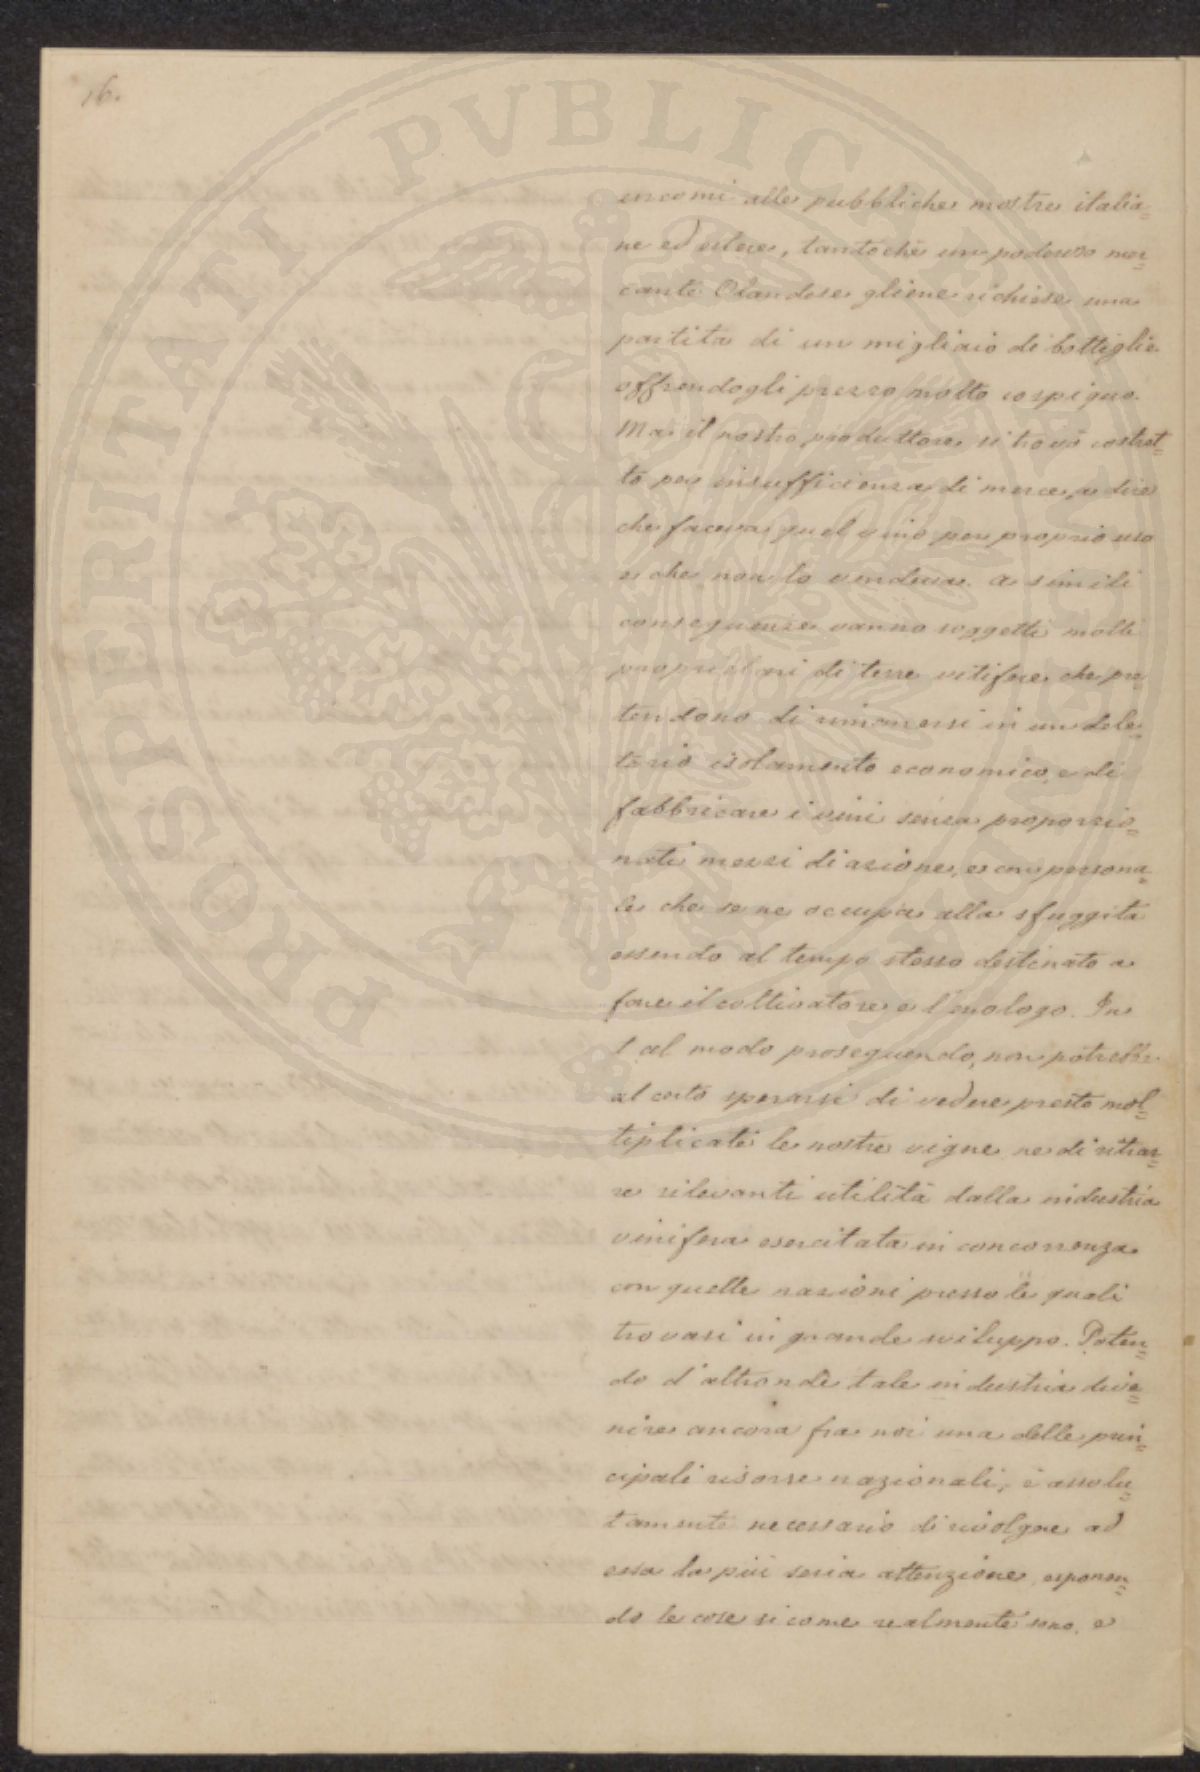 16.
PROSPERITATI PUBLICAE AUGENDAE
encomi alle pubbliche mostre italia=
ne ed estere, tantochè un poderoso mer=
cante Olandese gliene richiese una
partita di un migliaio di bottiglie
offrendogli prezzo molto cospiquo.
Ma il nostro produttore si trovò costret=
to per insufficienza di merce, a dire
che faceva quel vino per proprio uso
e che non lo vendeva. A simili
conseguenze vanno soggetti molti
proprietari di terre vitifere che pre=
tendono di rimanersi in un dele=
terio isolamento economico, e di
fabbricare i vini senza proporzio=
nati mezzi di azione, e con persona=
le che se ne occupa alla sfuggita
essendo al tempo stesso destinato a
fare il coltivatore e l'enologo. In
tal modo proseguendo, non potrebbe
al certo sperarsi di vedere presto mol=
tiplicate le nostre vigne ne di ritrar=
re rilevanti utilità dalla industria
vinifera esercitata in concorrenza
con quelle nazioni presso le quali
trovasi in grande sviluppo. Poten=
do d'altronde tale industria dive=
nire ancora fra noi una delle prin=
cipali risorse nazionali, è assolu=
tamente necessario di rivolgere ad
essa la più seria attenzione, esponen=
do le cose siccome realmente sono, e